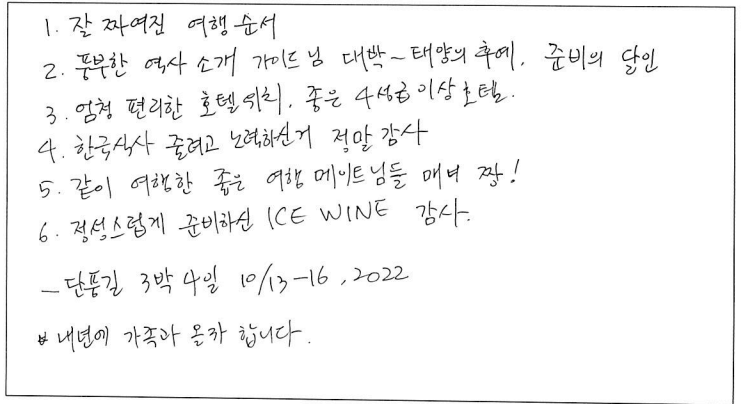 1. 잘 짜여진 여행 순서
2. 풍부한 역사 소개 가이드님 대박~태양의 후예, 준비의 달인
3. 엄청 편리한 호텔위치, 좋은 4성급이상호텔.
4. 한국식사 줄려고 노력하신거 정말 감사
5. 같이 여행한 좋은 여행 메이트님들 매너 짱!
6. 정성스럽게 준비하신 ICE WINE 감사.
- 단풍길 3박 4일 10/13-16, 2022
* 내년에 가족과 올까 합니다.